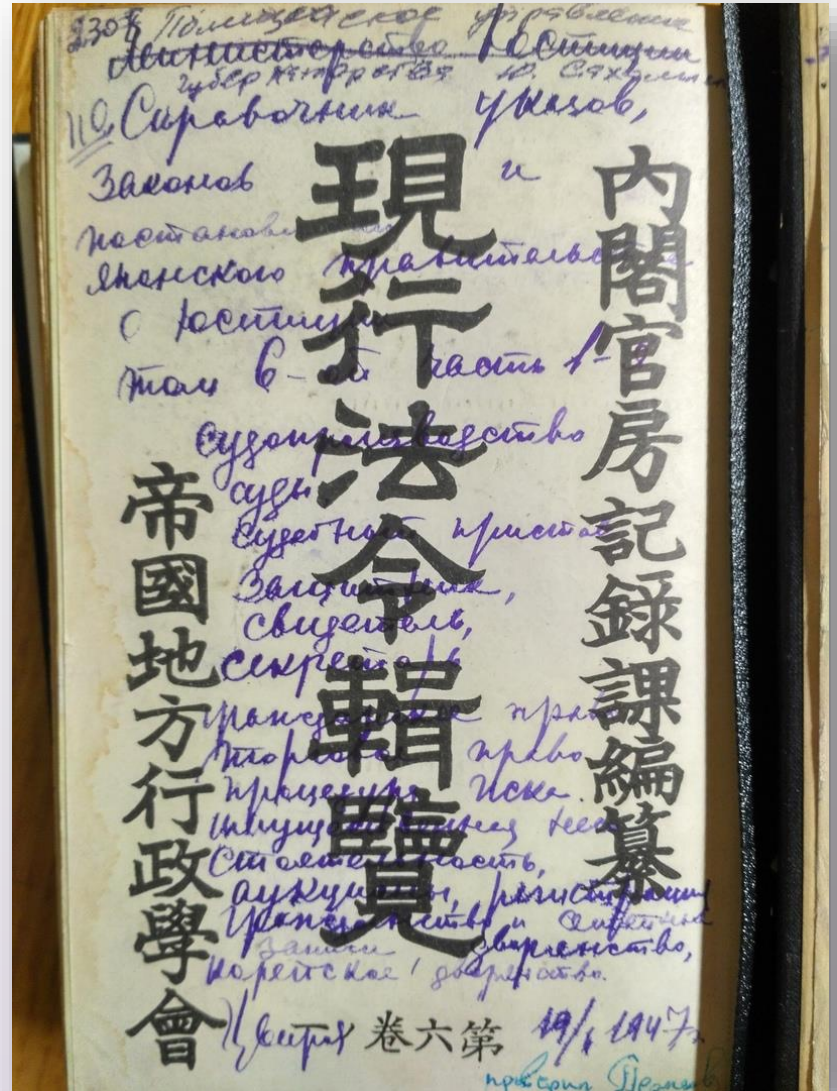 Полицейское управление
Министерство Юстиции
110 Справочник указов,
Законов и
Японского правительства
О Юстиции
том 6-ой часть 1-
судопроизводство
суды
судебный пристав
Защитник,
свидетель,
секретарь
гражданское право
торговое право
процедура иска
имущественная несо
стоятельность,
аукционы, регистрация
гражданство и
записи дворянство,
корейское дворянство.
19/I 1947г.
проверил
內閣官房記錄課編纂
現行法令輯覽
帝國地方行政學會
第六卷